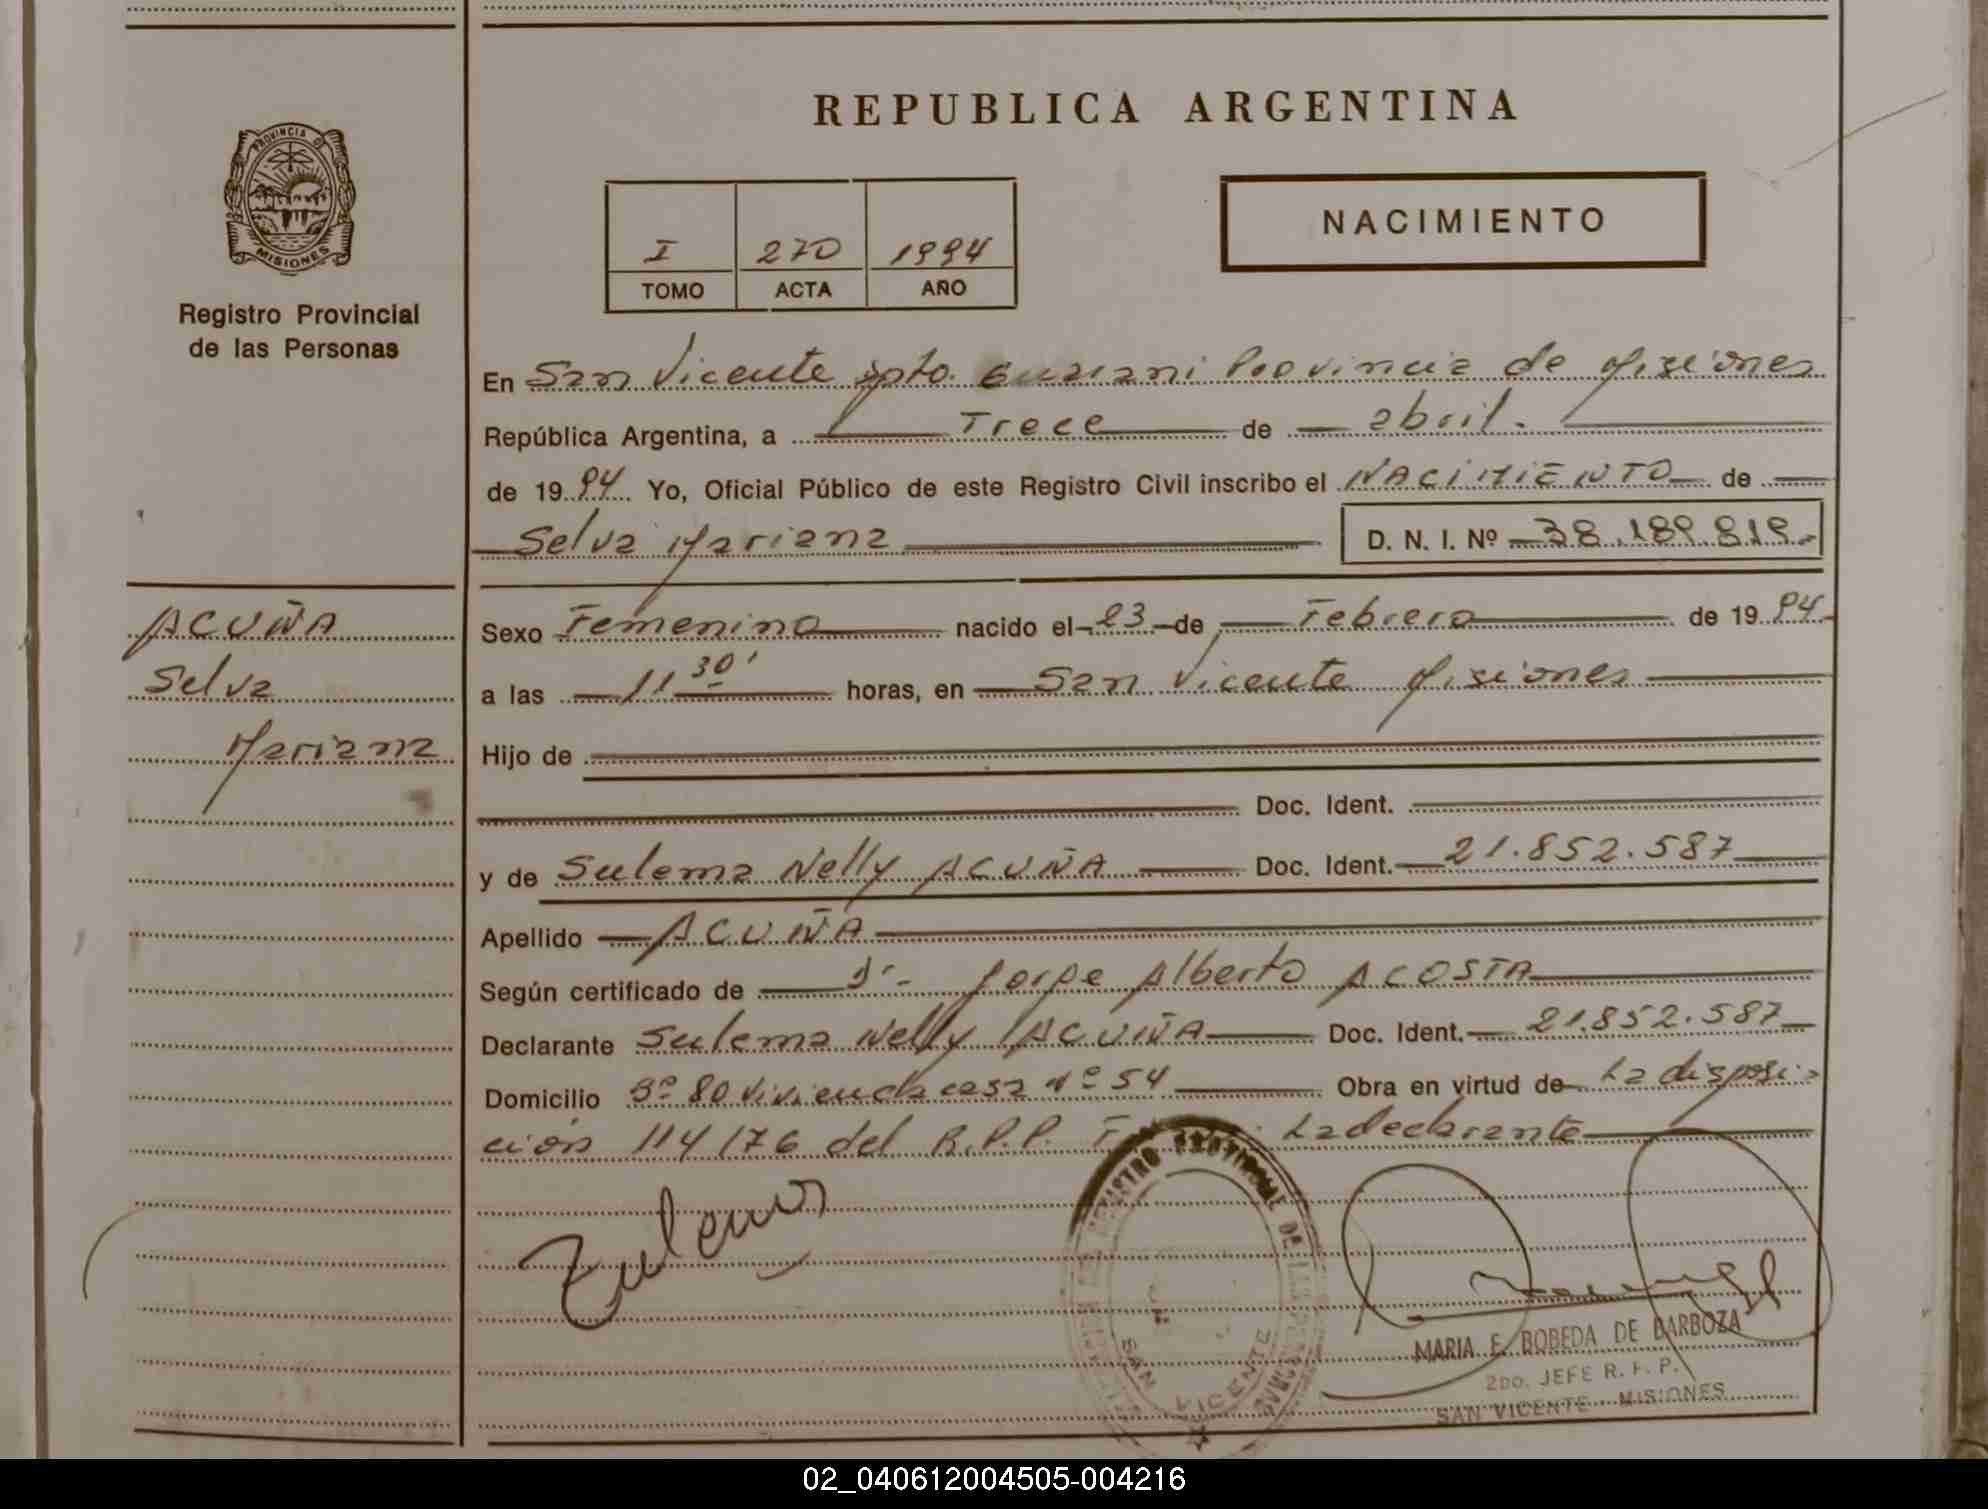 REPUBLICA ARGENTINA
PROVINCIA DE
MISIONES
Registro Provincial
de las Personas
I 270 1994
TOMO ACTA AÑO
NACIMIENTO
En San Vicente Dpto. Guarani Provincia de Misiones
República Argentina, a Trece de abril.
de 1994. Yo, Oficial Público de este Registro Civil inscribo el NACIMIENTO de
Selva Mariana D. N. I. Nº 38.189.819.
ACUÑA
Selva
Mariana
Sexo Femenino nacido el 23 de Febrero de 1994.
a las 11 30' horas, en San Vicente Misiones
Hijo de
Doc. Ident.
y de Sulema Nelly ACUÑA Doc. Ident. 21.852.587
Apellido ACUÑA
Según certificado de Jorge Alberto ACOSTA
Declarante Sulema Nelly ACUÑA Doc. Ident. 21.852.587
Domicilio Bº 80 Vivienda casa Nº 54 Obra en virtud de La disposi-
ción 114/76 del R.P.P. La declarante
Zulema
REGISTRO PROVINCIAL DE LAS PERSONAS
SAN VICENTE
MARIA E. BOBEDA DE BARBOZA
2DO. JEFE R. P. P.
SAN VICENTE - MISIONES
02_040612004505-004216